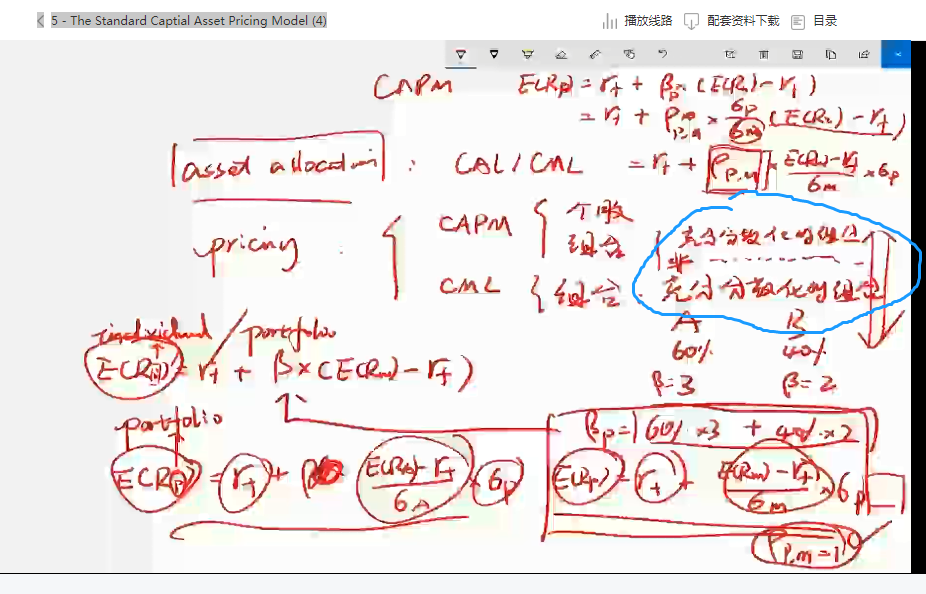 5 - The Standard Captial Asset Pricing Model (4)
播放线路 配套资料下载 目录
CAPM E(Rp) = rf + βp · (E(Rm) - rf)
= rf + ρp,m × σp/σm (E(Rm) - rf)
asset allocation : CAL/CML = rf + ρp,m × E(Rm) - rf/σm × σp
pricing : CAPM 个股
组合 充分分散化的组合
非
CML 组合 充分分散化的组合
A B
60% 40%
β=3 β=2
individual / portfolio
E(Ri) = rf + β × (E(Rm) - rf)
portfolio βp = 60% × 3 + 40% × 2
E(Rp) = rf + E(Rm) - rf/σm × σp
E(Rp) = rf + E(Rm) - rf/σm × σp
ρp,m = 1